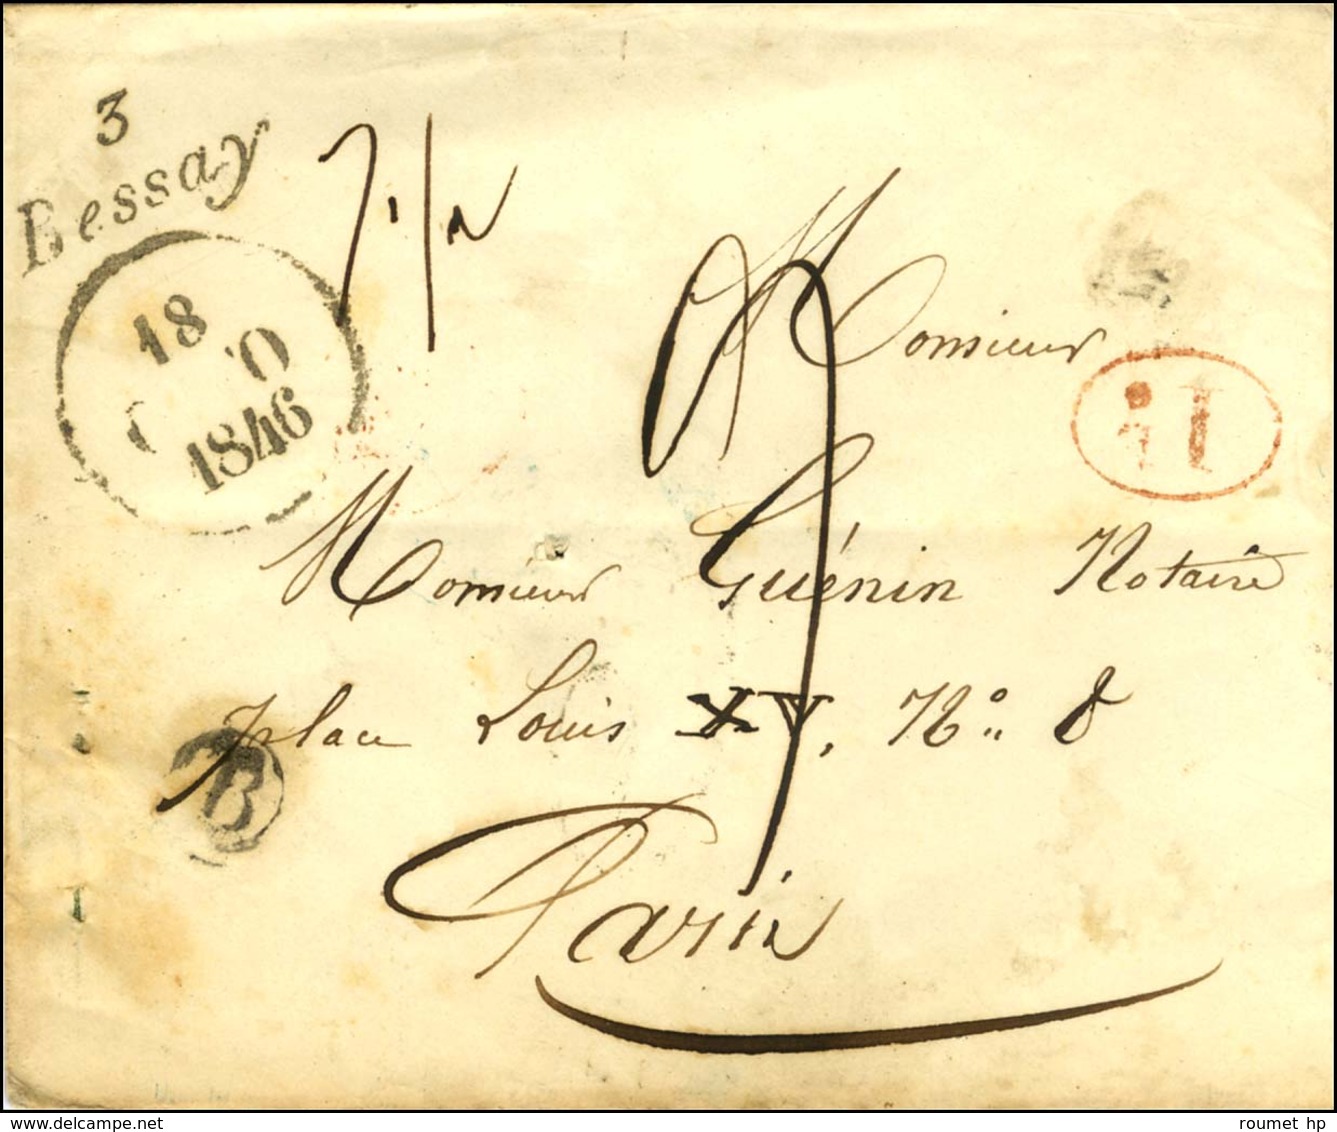 3
Bessay
18
1846
Monsieur
Monsieur Guénin Notaire
place Louis XV, N° 8
Paris
B
delcampe.net
roumet hp